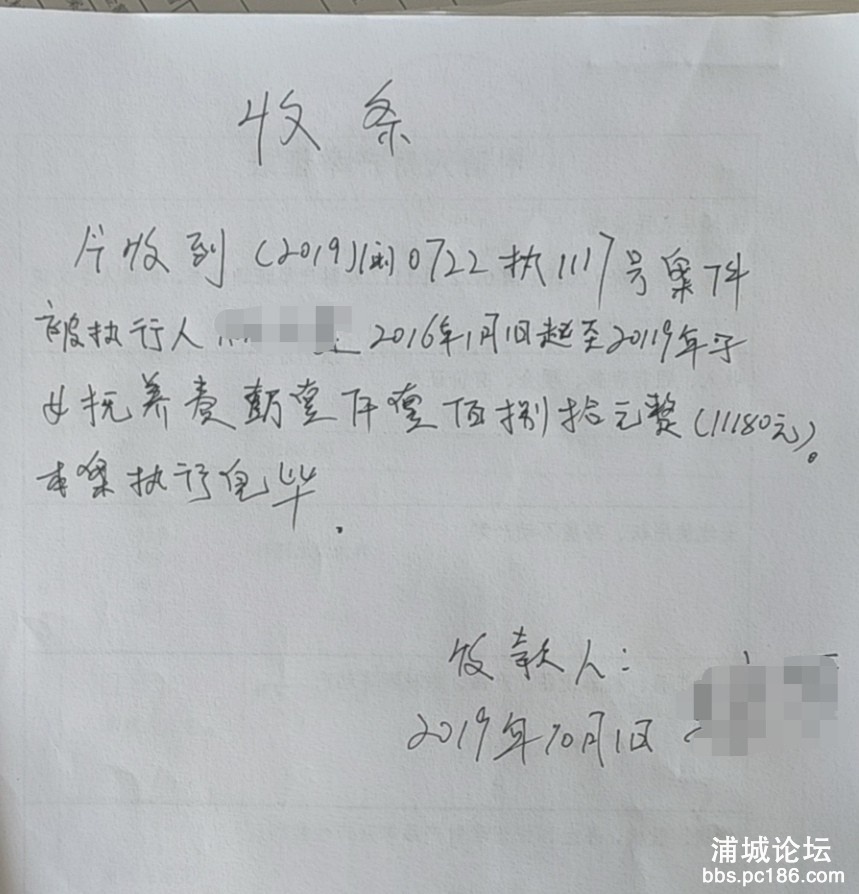 收条
今收到(2019)闽0722执1117号案件
被执行人 2016年1月1日起至2019年子
女抚养费壹万壹仟壹佰捌拾元整(11180元)。
本案执行完毕.
收款人:
2019年10月1日
浦城论坛
bbs.pc186.com